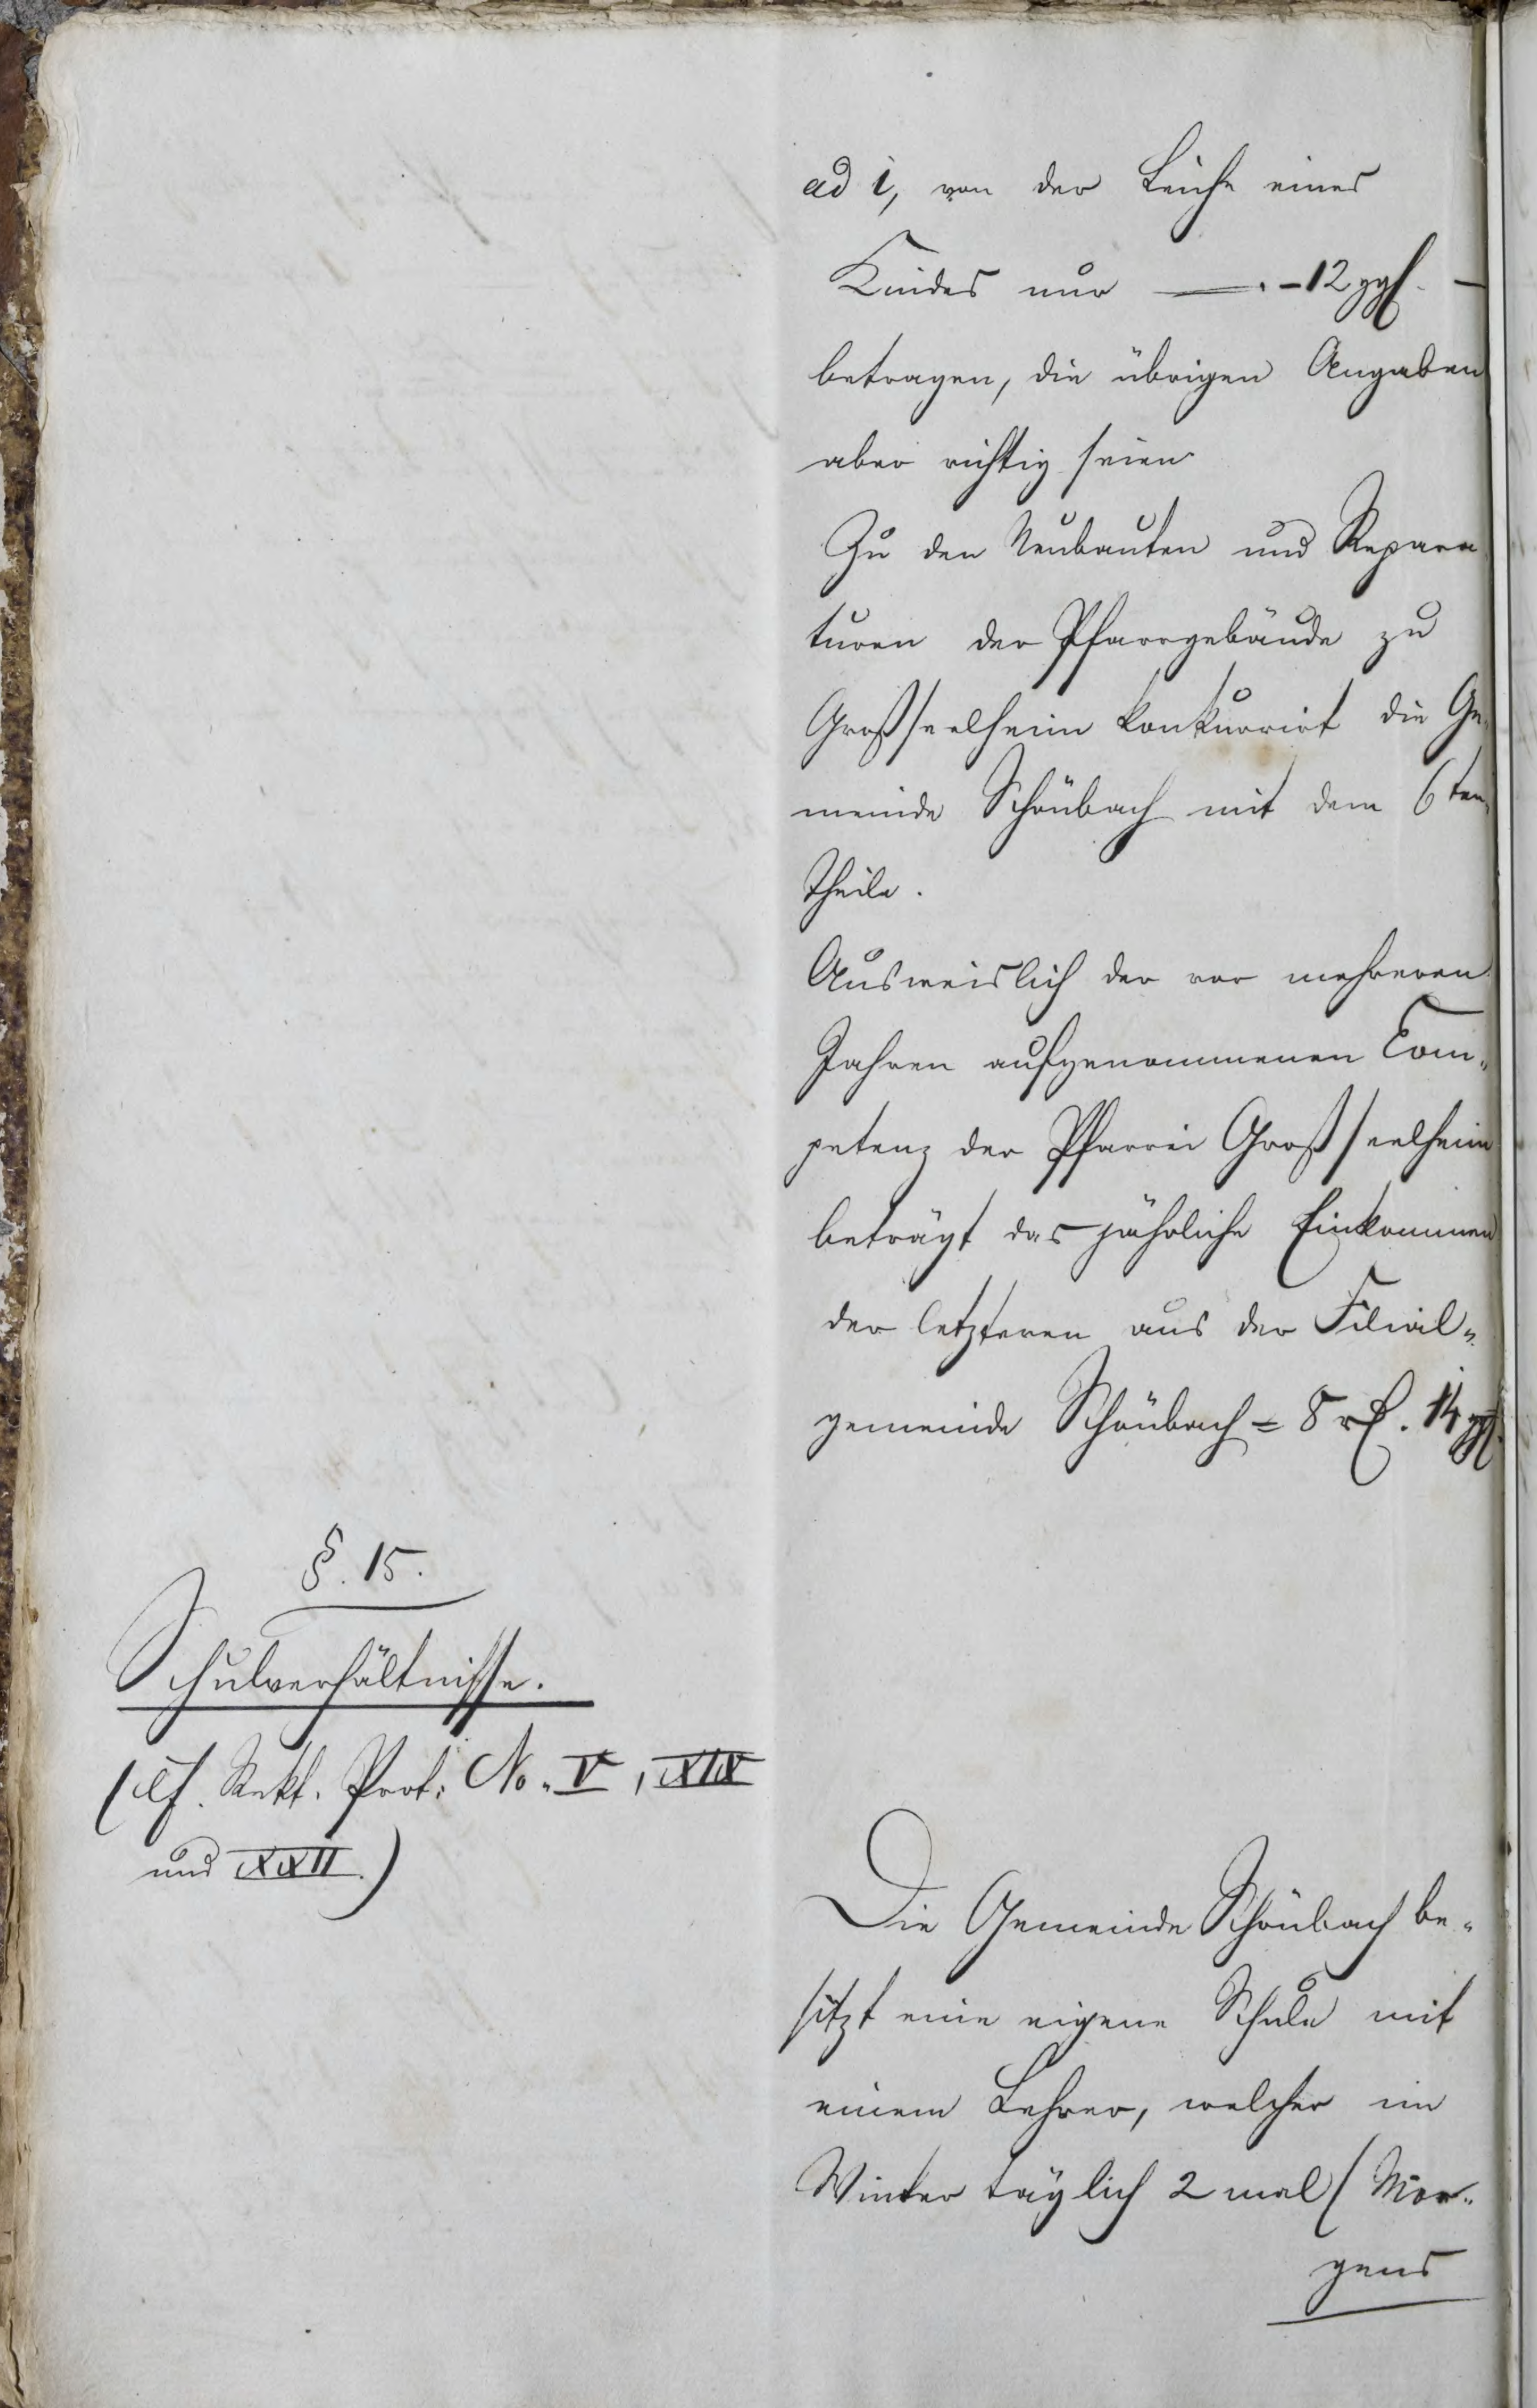 ad i, von der Leiche eines
Kindes nur —. – 12 ggl. –
betragen, die übrigen Angaben
aber richtig seien
Zu den Neubauten und Repara
turen der Pfarrgebäude zu
Großseelheim konkurrirt die Ge„
meinde Schönbach mit dem 6ten
Theile.
Ausweislich der vor mehreren
Jahren aufgenommenen Com„
petenz der Pfarrei Großseelheim
beträgt das jährliche Einkommen
der letzteren aus der Filial„
gemeinde Schönbach = 8 rℓ. 14 ggl.
§. 15.
Schulverhältnisse.
(cf. Rekt. Prot. No. V, XIX
und XXII.)
Die Gemeinde Schönbach be„
sitzt eine eigene Schule mit
einem Lehrer, welcher im
Winter täglich 2 mal (Mor„
gens